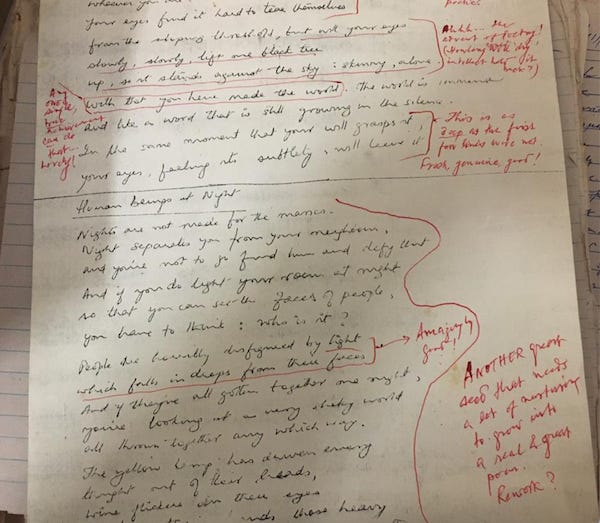 your eyes find it hard to tear themselves
from the sloping threshold, but will your eyes
slowly, slowly, lift one black tree
up, so it stands against the sky : skinny, alone.
With that you have made the world. The world is immense
And like a word that is still growing in the silence.
In the same moment that your will grasps it,
your eyes, feeling its subtlety, will leave it
Ahhh... the
of poetry!
Any
one
single,
true
achievement
can do
that...
Lovely!
This is as
deep as the first
few lines were not.
Fresh, genuine, good!
Human Beings at Night
Nights are not made for the masses.
Night separates you from your neighbour,
and you're not to go find him and defy that
And if you do light your room at night
so that you can see the faces of people,
you have to think : who is it?
People are horribly disfigured by light
which falls in drops from their faces
And if they've all gotten together one night,
you're looking at a very shaky world
all thrown together any which way.
The yellow lamp has driven every
thought out of their heads,
wine flickers in their eyes
those heavy
Amazingly
good!
ANOTHER great
seed that needs
a lot of nurturing
to grow into
a real & great
poem.
Rework?